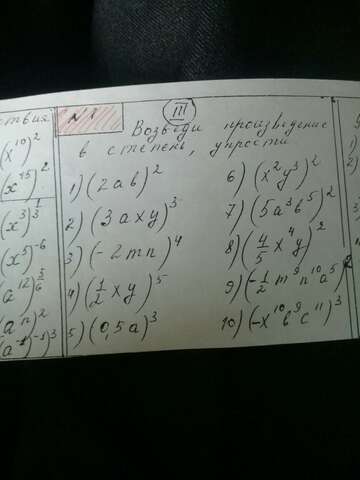 ствия
(x¹⁰)²
(x¹⁵)²
(x³)^(1/3)
(x⁵)⁻⁶
(a¹²)^(3/6)
(aⁿ)²
(a⁻¹)⁻¹)³
N 1
III
Возведи произведение
в степень, упрости
1) (2ab)²
2) (3axy)³
3) (-2mn)⁴
4) (1/2 xy)⁵
5) (0,5a)³
6) (x²y³)²
7) (5a³b⁵)²
8) (4/5 x⁴y)²
9) (-1/2 m⁹n¹⁰a⁵)²
10) (-x¹⁰b⁹c¹¹)³
1)
2)